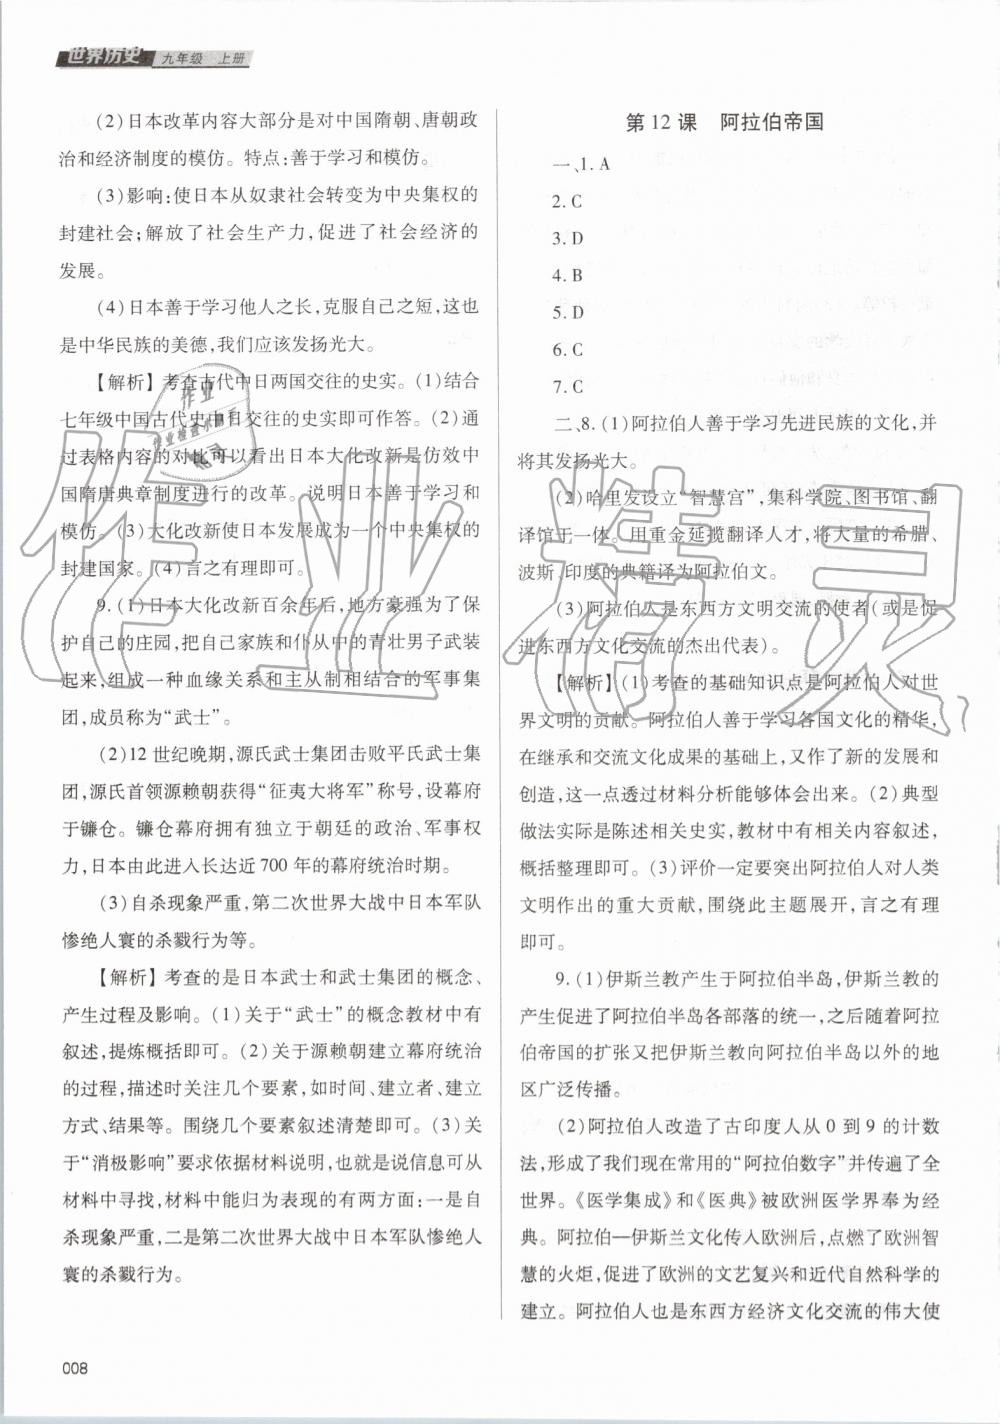 世界历史 九年级 上册
(2)日本改革内容大部分是对中国隋朝、唐朝政
治和经济制度的模仿。特点:善于学习和模仿。
(3)影响:使日本从奴隶社会转变为中央集权的
封建社会;解放了社会生产力,促进了社会经济的
发展。
(4)日本善于学习他人之长,克服自己之短,这也
是中华民族的美德,我们应该发扬光大。
【解析】考查古代中日两国交往的史实。(1)结合
七年级中国古代史中日交往的史实即可作答。(2)通
过表格内容的对比可以看出日本大化改新是仿效中
国隋唐典章制度进行的改革。说明日本善于学习和
模仿。(3)大化改新使日本发展成为一个中央集权的
封建国家。(4)言之有理即可。
9.(1)日本大化改新百余年后,地方豪强为了保
护自己的庄园,把自己家族和仆从中的青壮男子武装
起来,组成一种血缘关系和主从制相结合的军事集
团,成员称为“武士”。
(2)12世纪晚期,源氏武士集团击败平氏武士集
团,源氏首领源赖朝获得“征夷大将军”称号,设幕府
于镰仓。镰仓幕府拥有独立于朝廷的政治、军事权
力,日本由此进入长达近700年的幕府统治时期。
(3)自杀现象严重,第二次世界大战中日本军队
惨绝人寰的杀戮行为等。
【解析】考查的是日本武士和武士集团的概念、
产生过程及影响。(1)关于“武士”的概念教材中有
叙述,提炼概括即可。(2)关于源赖朝建立幕府统治
的过程,描述时关注几个要素,如时间、建立者、建立
方式、结果等。围绕几个要素叙述清楚即可。(3)关
于“消极影响”要求依据材料说明,也就是说信息可从
材料中寻找,材料中能归为表现的有两方面:一是自
杀现象严重,二是第二次世界大战中日本军队惨绝人
寰的杀戮行为。
008
第12课 阿拉伯帝国
一、1. A
2. C
3. D
4. B
5. D
6. C
7. C
二、8.(1)阿拉伯人善于学习先进民族的文化,并
将其发扬光大。
(2)哈里发设立“智慧宫”,集科学院、图书馆、翻
译馆于一体。用重金延揽翻译人才,将大量的希腊、
波斯、印度的典籍译为阿拉伯文。
(3)阿拉伯人是东西方文明交流的使者(或是促
进东西方文化交流的杰出代表)。
【解析】(1)考查的基础知识点是阿拉伯人对世
界文明的贡献。阿拉伯人善于学习各国文化的精华,
在继承和交流文化成果的基础上,又作了新的发展和
创造,这一点透过材料分析能够体会出来。(2)典型
做法实际是陈述相关史实,教材中有相关内容叙述,
概括整理即可。(3)评价一定要突出阿拉伯人对人类
文明作出的重大贡献,围绕此主题展开,言之有理
即可。
9.(1)伊斯兰教产生于阿拉伯半岛,伊斯兰教的
产生促进了阿拉伯半岛各部落的统一,之后随着阿拉
伯帝国的扩张又把伊斯兰教向阿拉伯半岛以外的地
区广泛传播。
(2)阿拉伯人改造了古印度人从0到9的计数
法,形成了我们现在常用的“阿拉伯数字”并传遍了全
世界。《医学集成》和《医典》被欧洲医学界奉为经
典。阿拉伯—伊斯兰文化传入欧洲后,点燃了欧洲智
慧的火炬,促进了欧洲的文艺复兴和近代自然科学的
建立。阿拉伯人也是东西方经济文化交流的伟大使
作业精灵